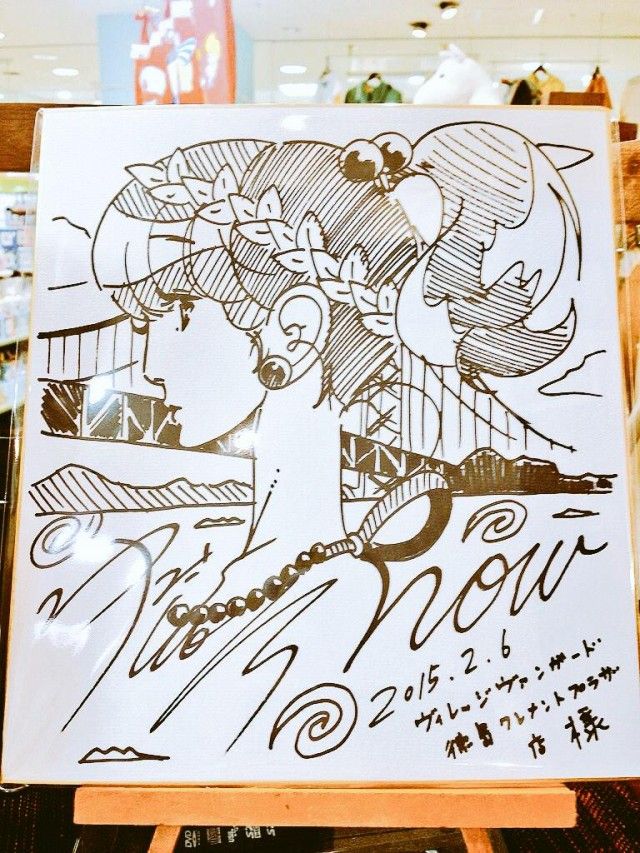 now
2015.2.6
ヴィレッジヴァンガード
徳島クレメントプラザ
店 様